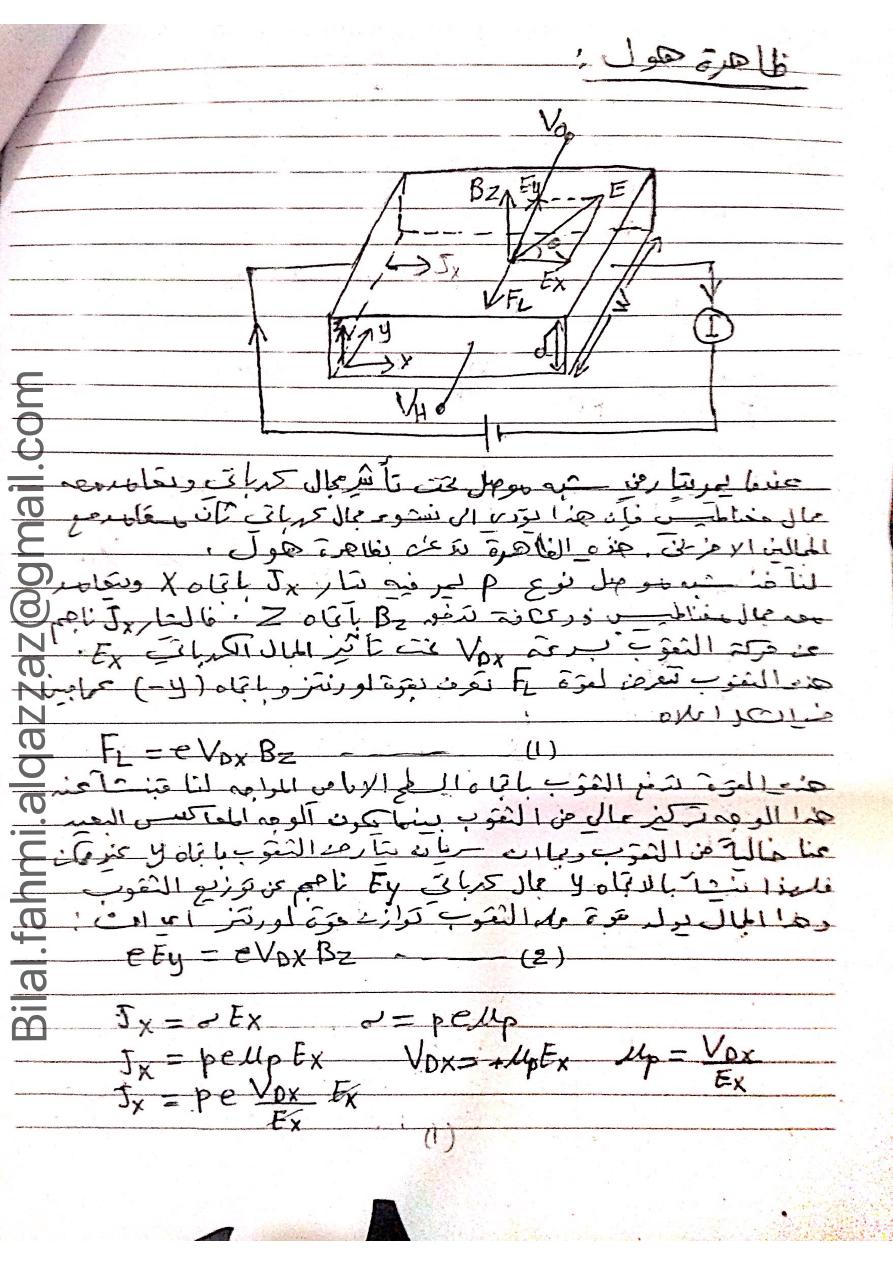 ظاهرة هول :
V₀
Bz Ey E
θ
Jx Ex
FL
W
I
z y
x
d
VH
عندما يمر تيار في شبه موصل تحت تأثير مجال كهربائي ويتعامد معه
مجال مغناطيسي فإن هذا يؤدي الى نشوء مجال كهربائي ثان متعامد مع
المجالين الاخرين . هذه الظاهرة تدعى بظاهرة هول .
لنأخذ شبه موصل نوع p يمر فيه تيار Jx باتجاه X ويتعامد
معه مجال مغناطيسي ذو كثافة تدفق Bz بأتجاه Z . فالتيار Jx ناجم
عن حركة الثقوب بسرعة VDX تحت تأثير المجال الكهربائي Ex .
هذه الثقوب تتعرض لقوة FL تعرف بقوة لورنتز وباتجاه (-y) كما مبين
في الشكل اعلاه :
FL = e VDX Bz ـــــــ (1)
هذه القوة تدفع الثقوب باتجاه السطح الامامي المواجه لنا فينشأ عند
هذا الوجه تركيز عالي من الثقوب بينما يكون الوجه المعاكس البعيد
عنا خالياً من الثقوب وبما ان سريان تيار من الثقوب باتجاه y غير ممكن
فلهذا ينشأ بالاتجاه y مجال كهربائي Ey ناجم عن توزيع الثقوب
وهذا المجال يولد قوة على الثقوب توازن قوة لورنتز اي ان :
e Ey = e VDX Bz - ـــــــ (2)
Jx = σ Ex σ = p e μp
Jx = p e μp Ex VDX = +μp Ex μp = VDX / Ex
Jx = p e VDX / Ex Ex
(1)
Bilal.fahmi.alqazzaz@gmail.com